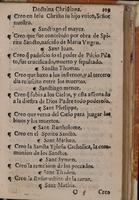 Doctrina Christiana. 109
Creo en Iesu Christo su hijo vnico, Señor
nuestro.
Sanctiago el mayor.
Creo que fue concebido por obra de Spi-
ritu Sancto, nascio de Maria Virgen.
Sant Iuan.
Creo q̃ padescio so el poder de Pōcio Pila
to, fue crucificado, muerto y sepultado.
Sancto Thomas.
Creo que baxo a los infiernos, y al tercero
dia resuscito entre los muertos.
Sanctiago el menor.
Creo q̃ subio a los Cielos, y esta assentado
a la diestra de Dios Padre todo poderoso.
Sant Phelippe.
Creo que verna del Cielo para juzgar los
biuos y los muertos.
Sant Bartholome.
Creo en el Spiritu Sancto.
Sant Matheo.
Creo la Sancta Yglesia Catholica, la com-
munion de los Sanctos.
Sant Symon.
Creo la remission de los peccados.
Sant Thadeo.
Creo la resurrection de la carne.
Sant Mathia.
O Creo